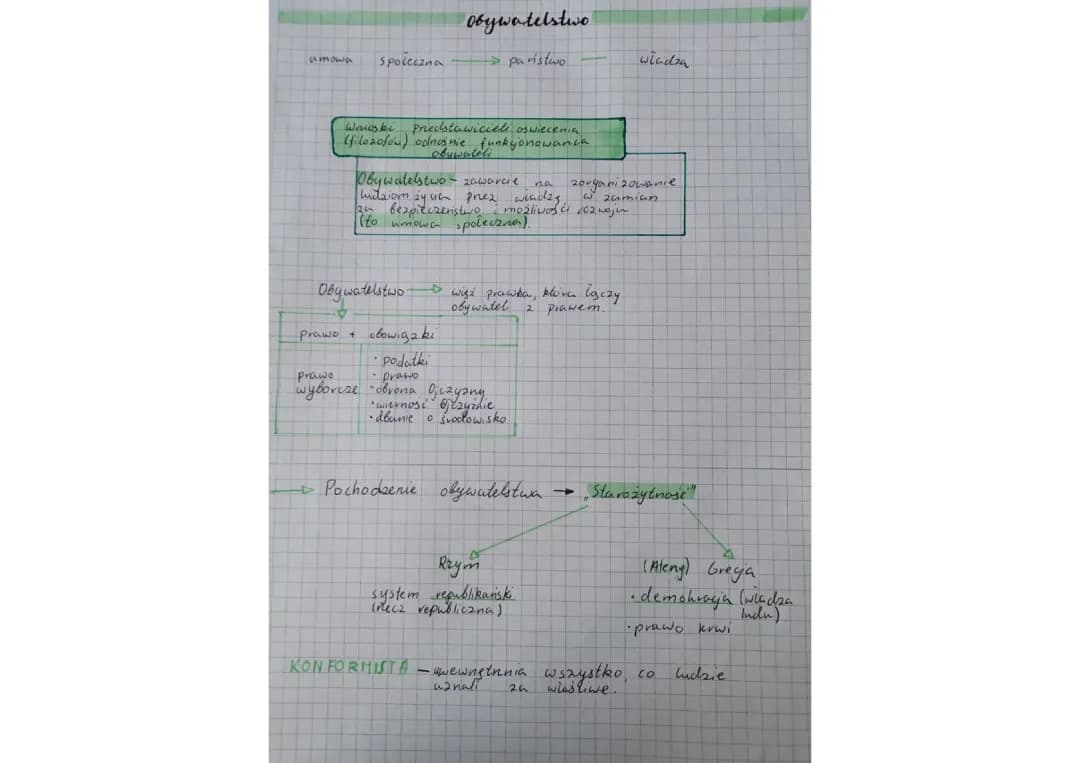 Obywatelstwo
umowa społeczna → państwo — władza
Wnioski przedstawicieli oświecenia
(filozofów) odnośnie funkcjonowania
obywateli
Obywatelstwo - zawarcie na zorganizowanie
ludziom życia przez władzę w zamian
za bezpieczeństwo i możliwości rozwoju
(to umowa społeczna).
Obywatelstwo → więź prawna, która łączy
obywateli z prawem.
prawo + obowiązki
prawo
wyborcze
• podatki
• prawo
• obrona Ojczyzny
• wierność Ojczyźnie
• dbanie o środowisko
→ Pochodzenie obywatelstwa → „Starożytność"
Rzym
system republikański
(rzecz republiczna)
(Ateny) Grecja
• demokracja (władza
ludu)
• prawo krwi
KONFORMISTA - uwewnętrznia wszystko, co ludzie
uznali za właściwe.